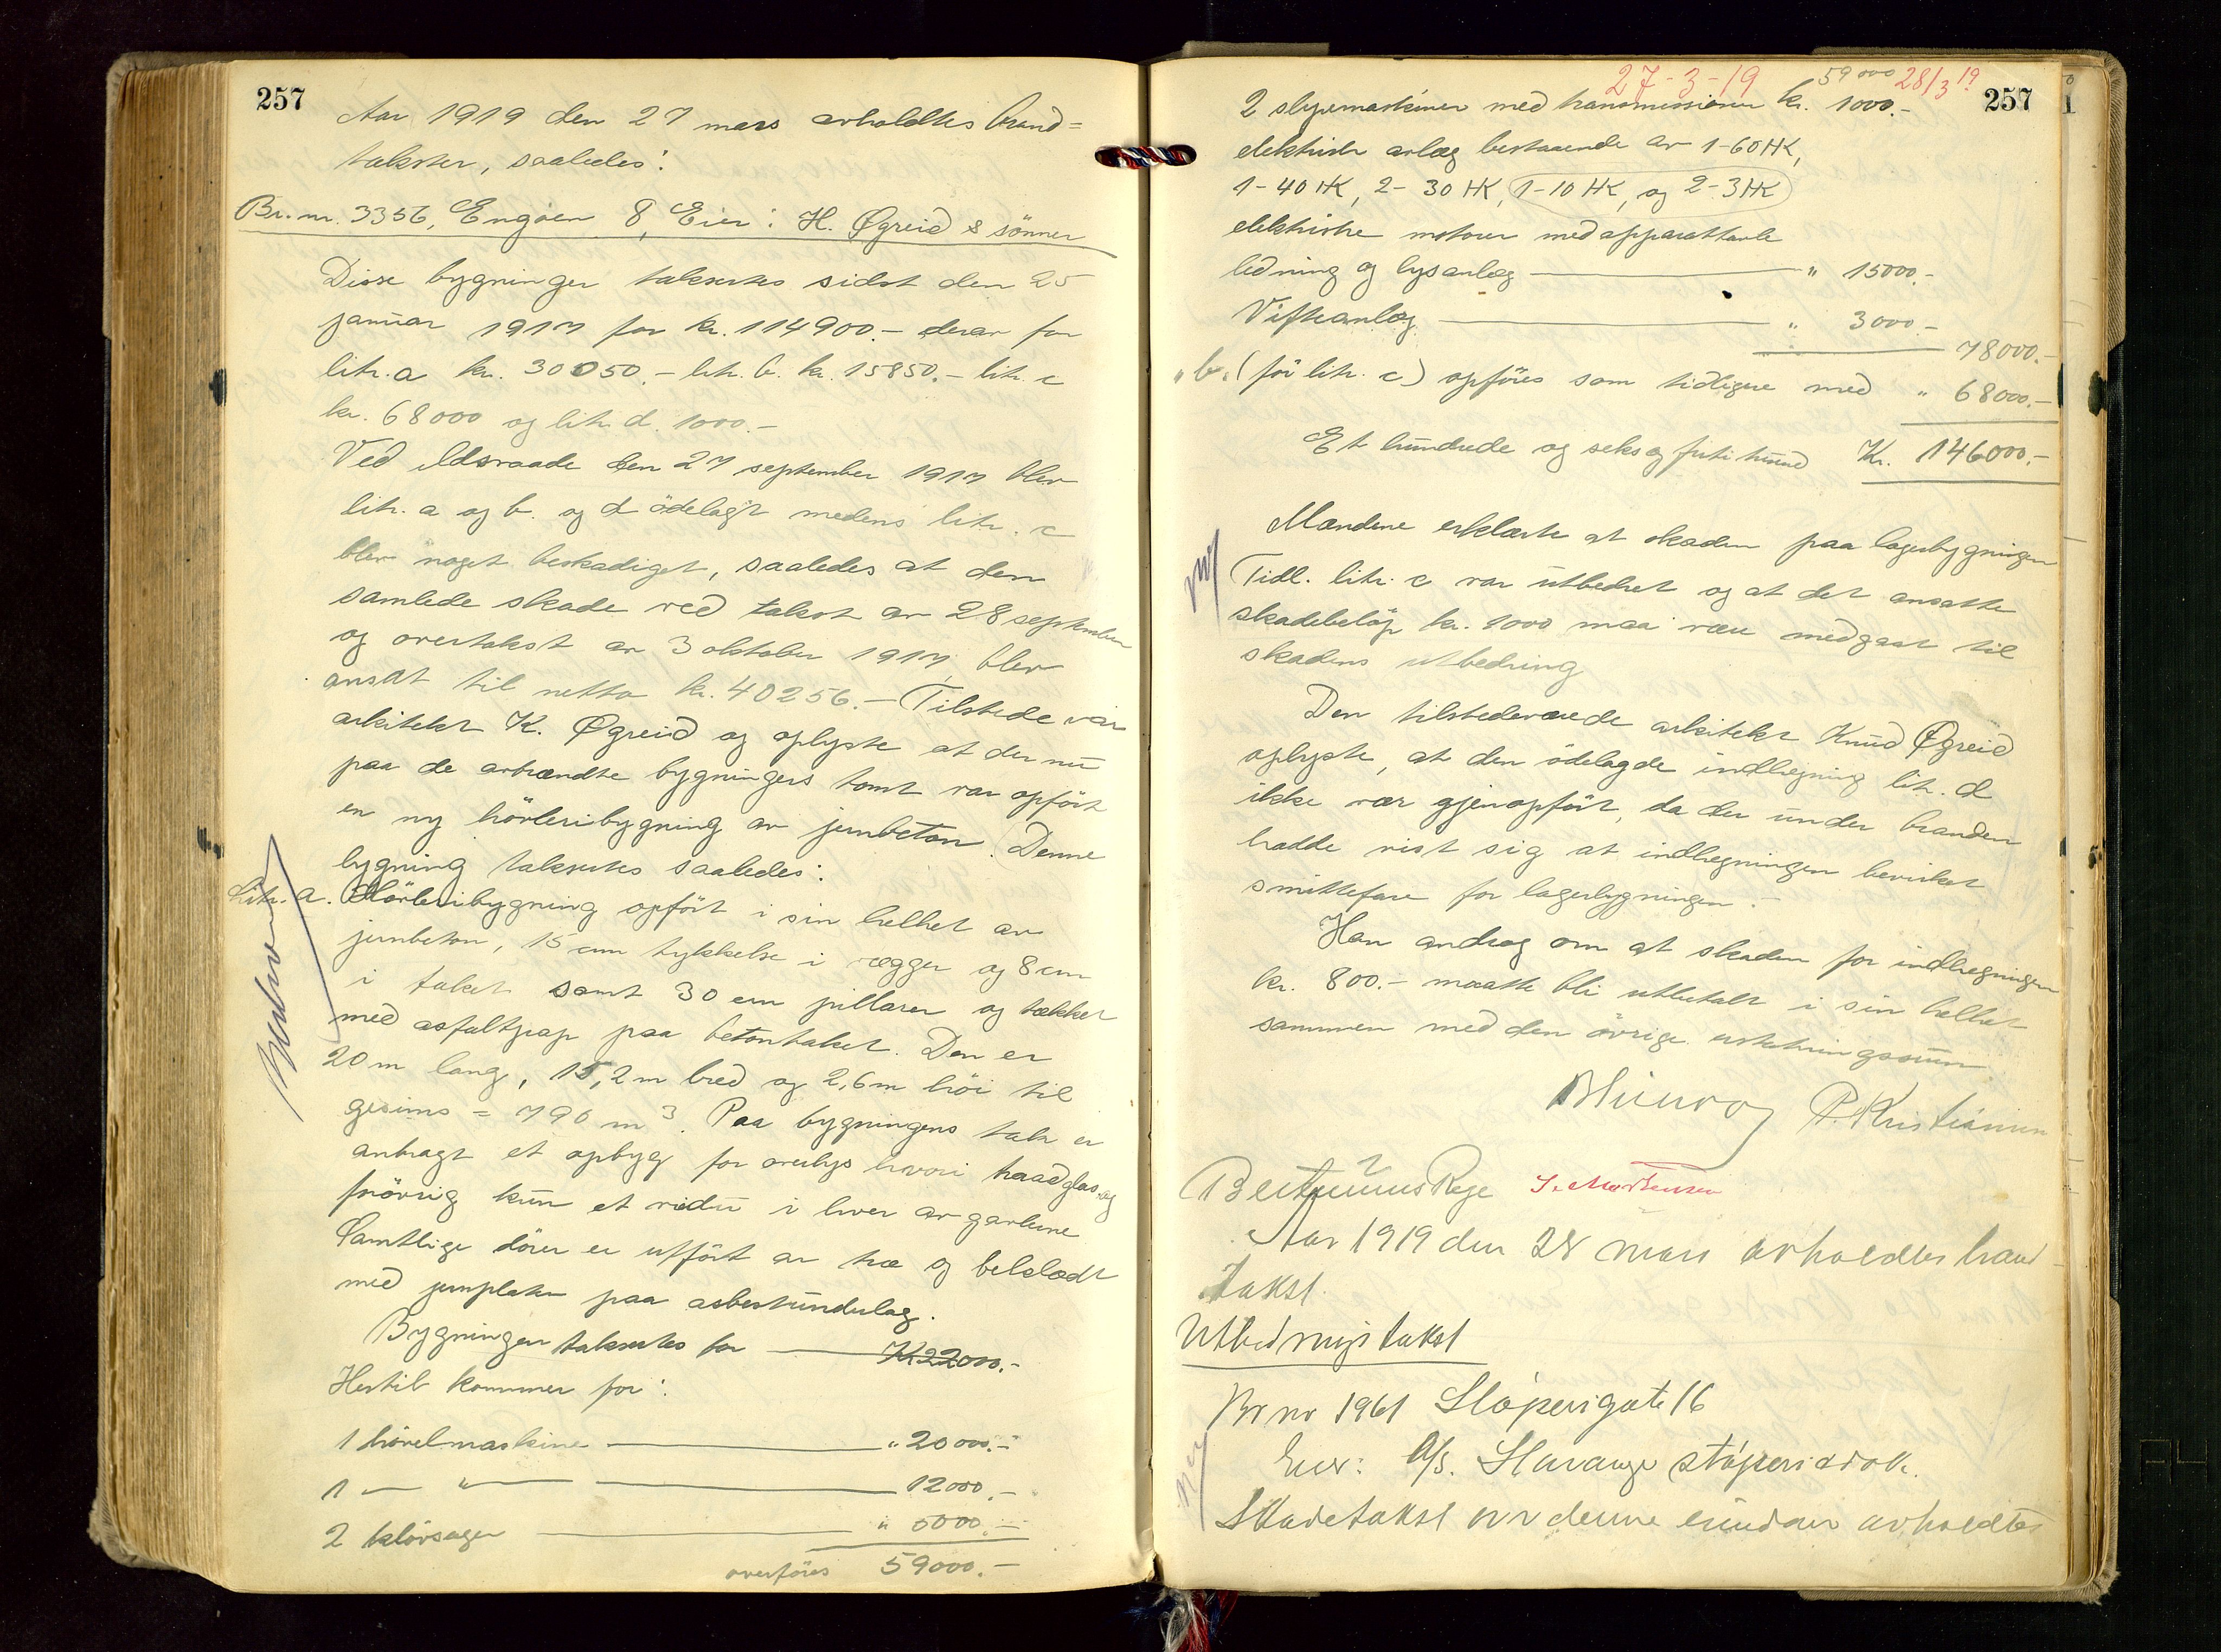 257
Aar 1919 den 27 mars avholdtes brand=
takster, saaledes:
Br. nr. 3356, Engøen 8, Eier: H. Øgreid & sönner
Disse bygninger taksertes sidst den 25
januar 1917 for kr. 114900.- derav for
litr. a kr. 30050.- litr. b. kr. 15850.- litr. c
kr. 68000 og litr. d. 1000.-
Ved ildsvaade den 27 september 1917 blev
litr. a og b. og d ödelagt medens litr. c
blev noget beskadiget, saaledes at den
samlede skade ved takst av 28 september
og overtakst av 3 oktober 1917 blev
ansat til netto kr. 40256.- Tilstede var
arkitekt K. Øgreid og oplyste at der nu
paa de avbrændte bygningers tomt var opfört
en ny hövleribygning av jernbeton. Denne
bygning takseres saaledes:
Litr. a. Hövleribygning opfört i sin helhet av
jernbeton, 15 cm tykkelse i vægger og 8 cm
i taket samt 30 cm pillarer og tækket
med asfaltpap paa betontaket. Den er
20 m lang, 15,2 m bred og 2,6 m höi til
gesims = 790 m³. Paa bygningens tak er
anbragt et opbyg for overlys hvori traadglas og
forövrig kun et vindu i hver av gavlene
Samtlige dörer er utfört av træ og beklædt
med jernplater paa asbestunderlag.
Bygningen takseres for Kr 22000.-
Hertil kommer for:
1 hövelmaskine " 20000.-
1 — " — 12000.-
2 klövsager " 5000.-
overföres 59000.-
27-3-19 59000 28/3 19
257
2 slipemaskiner med transmissioner kr. 1000.-
elektrisk anlæg bestaaende av 1-60 HK,
1-40 HK, 2-30 HK, 1-10 HK, og 2-3 HK
elektriske motorer med apparattavle
ledning og lysanlæg " 15000.-
Vifteanlæg " 3000.-
78000.-
" b. (för litr. c) opföres som tidligere med " 68000.-
Et hundrede og seks og firti tusind Kr. 146000.-
Mændene erklærte at skaden paa lagerbygningen
Tidl. litr. c var utbedret og at det ansatte
skadebelöp kr. 1000 maa være medgaat til
skadens utbedring
Den tilstedeværende arkitekt Knud Øgreid
oplyste, at den ödelagde indhegning litr. d
ikke var gjenopfört, da der under branden
hadde vist sig at indhegningen bevirket
smittefare for lagerbygningen.-
Han androg om at skaden for indhegningen
kr. 800.- maatte bli utbetalt i sin helhet
sammen med den övrige erstatningssum
P. Kristiansen
Rege S. Mortensen
Aar 1919 den 28 mars avholdtes brand-
takst.
Utbedringstakst
Br nr 1961 Stöperigate 16
Eier: A/S. Stavanger stöperi & dok.
Skadetakst over denne eiendom avholdtes